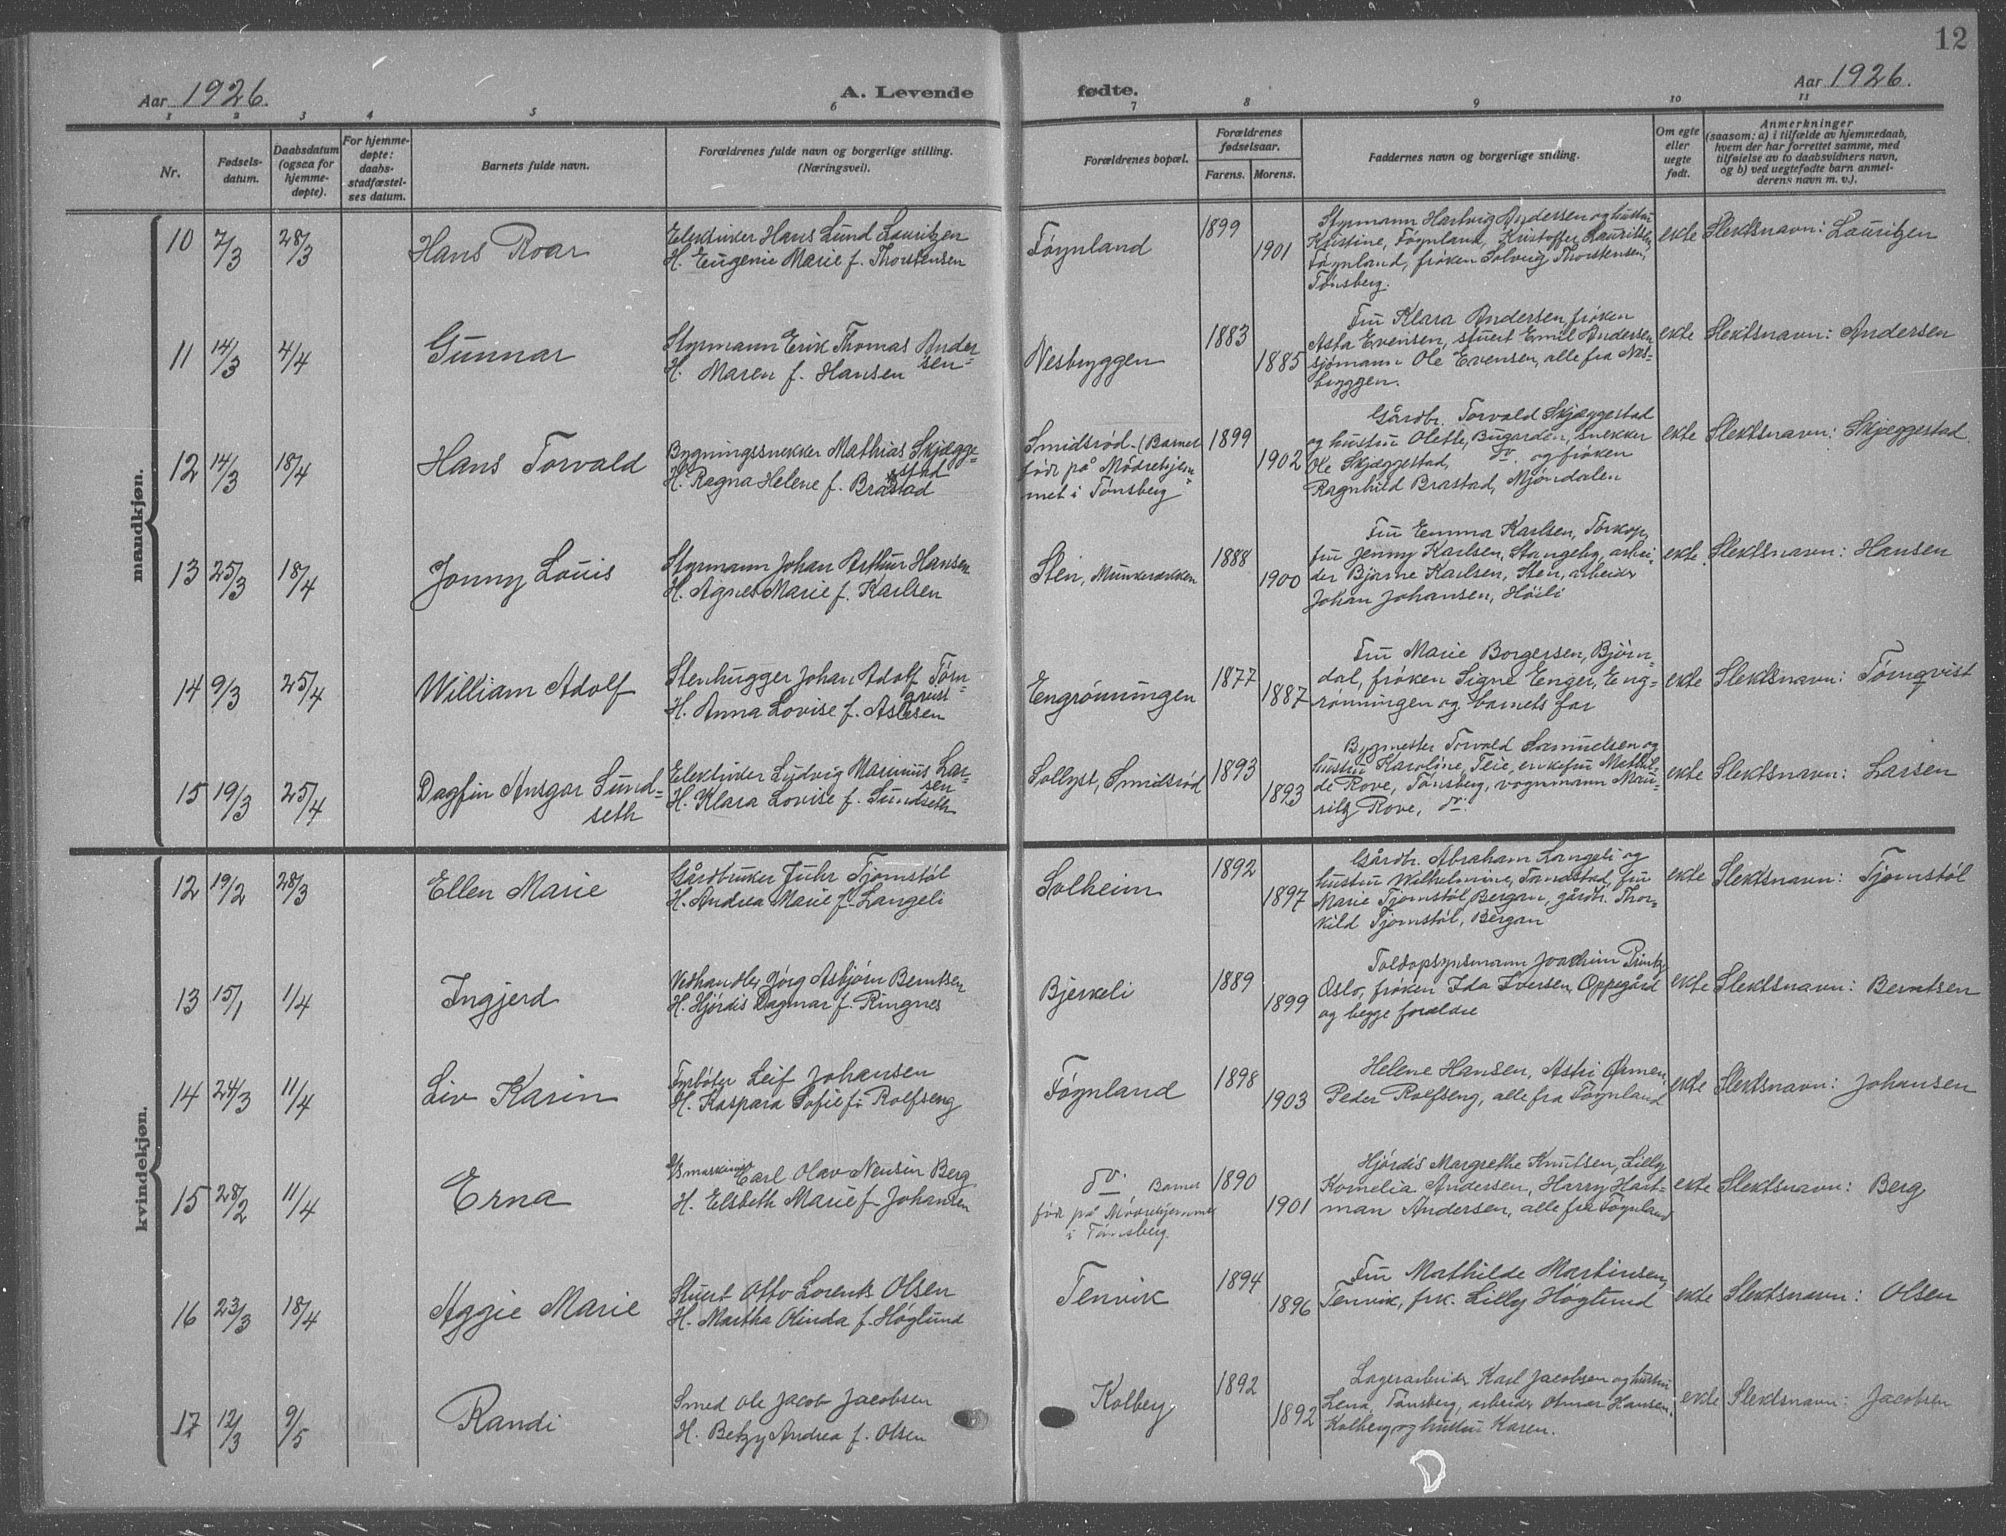 12
Aar 1926.
A. Levende
fødte.
Aar 1926.
1 2 3 4 5 6 7 8 9 10 11
Nr.
Fødsels-
datum.
Daabsdatum
(ogsaa for
hjemme-
døpte).
For hjemme-
døpte:
daabs-
stadfæstel-
ses datum.
Barnets fulde navn.
Forældrenes fulde navn og borgerlige stilling.
(Næringsvei).
Forældrenes bopæl.
Forældrenes
fødselsaar.
Farens. Morens.
Faddernes navn og borgerlige stilling.
Om egte
eller
uegte
født.
Anmerkninger
(saasom: a) i tilfælde av hjemmedaab,
hvem der har forrettet samme, med
tilføielse av to daabsvidners navn,
og b) ved uegtefødte barn anmel-
derens navn m. v.).
mandkjøn.
10 7/3 28/3 Hans Roar
Elektriker Hans Lund Lauritzen
H. Eugenie Marie f. Thorstensen
Føynland
1899
1901
Styrmann Hartvig Andersen og hustru
Kristine, Føynland, Kristoffer Lauritsen,
Føynland, frøken Solveig Thorstensen,
Tønsberg.
ekte
Slektsnavn: Lauritzen
11 14/3 4/4 Gunnar
Styrmann Erik Thomas Ander-
sen
H. Maren f. Hansen
Nesbryggen
1883
1885
Fru Klara Andersen, frøken
Asta Evensen, stuert Emil Andersen,
sjømann Ole Evensen, alle fra Nes-
bryggen.
ekte
Slektsnavn: Andersen
12 14/3 18/4 Hans Torvald
Bygningssnekker Mathias Skjægge-
stad
H. Ragna Helene f. Brastad
Smidsrød. (Barnet
født på Mødrehjem-
met i Tønsberg
1899
1902
Gårdbr. Torvald Skjæggestad
og hustru Olette, Bugården, snekker
Ole Skjæggestad, do. og frøken
Ragnhild Brastad, Mjøndalen
ekte
Slektsnavn: Skjeggestad.
13 25/3 18/4 Jonny Louis
Styrmann Johan Arthur Hansen
H. Agnes Marie f. Karlsen
Sten,
1888
1900
Fru Emma Karlsen, Torkop,
fru Jenny Karlsen, Stangeby, arbei-
der Bjarne Karlsen, Sten, arbeider
Johan Johansen, Høili
ekte
Slektsnavn: Hansen
14 9/3 25/4 William Adolf
Stenhugger Johan Adolf Törn-
qvist
H. Anna Lovise f. Aslesen
Engrønningen
1877
1887
Fru Marie Borgersen, Bjørn-
dal, frøken Signe Enger, Eng-
rønningen og barnets far
ekte
Slektsnavn: Törnqvist
15 19/3 25/4 Dagfin Ansgar Sund-
seth
Elektriker Ludvig Marinius Lar-
sen
H. Klara Lovise f. Sundseth
Sollyst, Smidsrød
1893
1893
Bygmester Torvald Samuelsen og
hustru Karoline, Teie, enkefru Mathil-
de Rove, Tønsberg, vognmann Mau-
ritz Rove, do.
ekte
Slektsnavn: Larsen
kvindekjøn.
12 19/2 28/3 Ellen Marie
Gårdbruker Juhr Tjomstøl
H. Andrea Marie f. Langeli
Solheim
1892
1897
Gårdbr. Abraham Langeli og
hustru Wilhelmine, fru
Marie Tjomstøl, Bergan, gårdbr. Thor-
kild Tjomstøl, Bergan
ekte
Slektsnavn: Tjomstøl
13 15/1 1/4 Ingjerd
Vedhandler Jörg Asbjørn Berntsen
H. Hjördis Dagmar f. Ringnes
Bjerkeli
1889
1899
Toldopsynsmann Joachim
Oslo, frøken Ida Iversen, Oppegård
og begge forældre
ekte
Slektsnavn: Berntsen
14 24/3 11/4 Liv Karin
Fyrbøter Leif Johansen
H. Kaspara Sofie f. Rolfseng
Føynland
1898
1903
Helene Hansen, Astri Ormen,
Peder Rolfseng, alle fra Føynland
ekte
Slektsnavn: Johansen
15 28/2 11/4 Erna
Carl Olav Nensin Berg
H. Elsbeth Marie f. Johansen
do. Barnet
født på Mødrehjemmet
i Tønsberg.
1890
1901
Hjördis Margrethe Knutsen, Lilly
Kornelia Andersen, Harry Hart-
man Andersen, alle fra Føynland
ekte
Slektsnavn: Berg
16 23/3 18/4 Aggie Marie
Stuert Otto Lorents Olsen
H. Martha Olinda f. Høglund
Tenvik
1894
1896
Fru Mathilde Martinsen,
Tenvik, frk. Lilly Høglund
ekte
Slektsnavn: Olsen
17 12/3 9/5 Randi
Smed Ole Jacob Jacobsen
H. Betzy Andrea f. Olsen
Kolberg
1892
1892
Lagerarbeider Karl Jacobsen og hustru
Lena, Tønsberg, arbeider Otmar Hansen,
Kolberg og hustru Karen.
ekte
Slektsnavn: Jacobsen